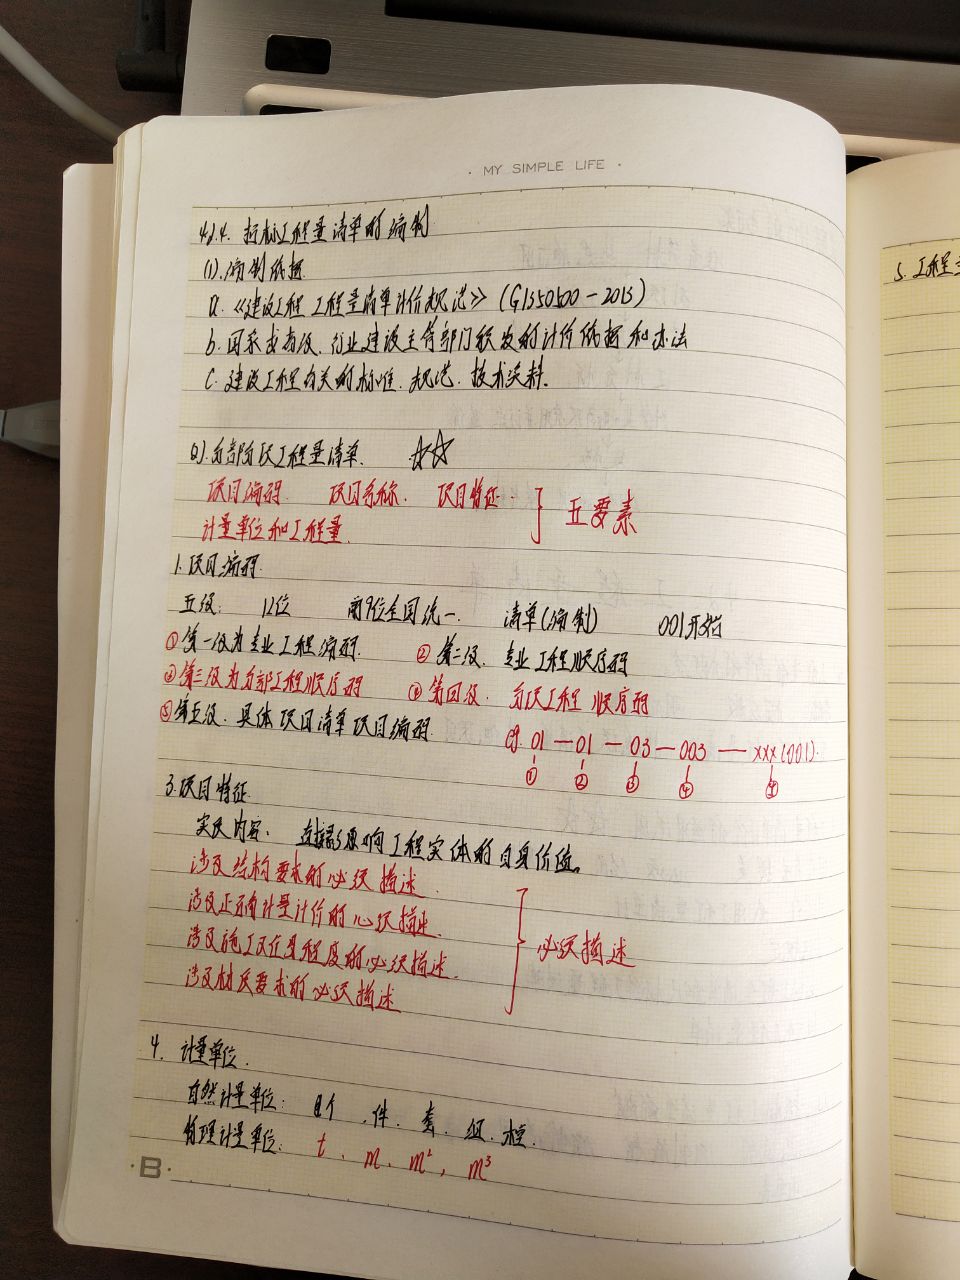 · MY SIMPLE LIFE ·
4.2.4. 招标工程量清单的编制
(1).编制依据
a.《建设工程 工程量清单计价规范》(GB50500-2013)
b.国家或省级、行业建设主管部门颁发的计价依据和办法
C.建设工程有关的标准、规范、技术资料.
(2).分部分项工程量清单. ☆☆
项目编码. 项目名称. 项目特征.
计量单位和工程量. 五要素
1.项目编码.
五级: 12位 前9位全国统一 清单(编制) 001开始
①第一级为专业工程编码. ②第二级、专业工程顺序码
③第三级为分部工程顺序码 ④第四级、分项工程顺序码
⑤第五级、具体项目清单项目编码.
例. 01—01—03—003—xxx(001).
① ② ③ ④ ⑤
3.项目特征.
实质内容、直接影响工程实体的自身价值。
涉及结构要求的必须描述.
涉及正确计量计价的必须描述.
涉及施工难易程度的必须描述. 必须描述
涉及材质要求的必须描述
4. 计量单位.
自然计量单位: 个、件、套、组、樘.
物理计量单位: t、m、m²、m³
·B·
5.工程量